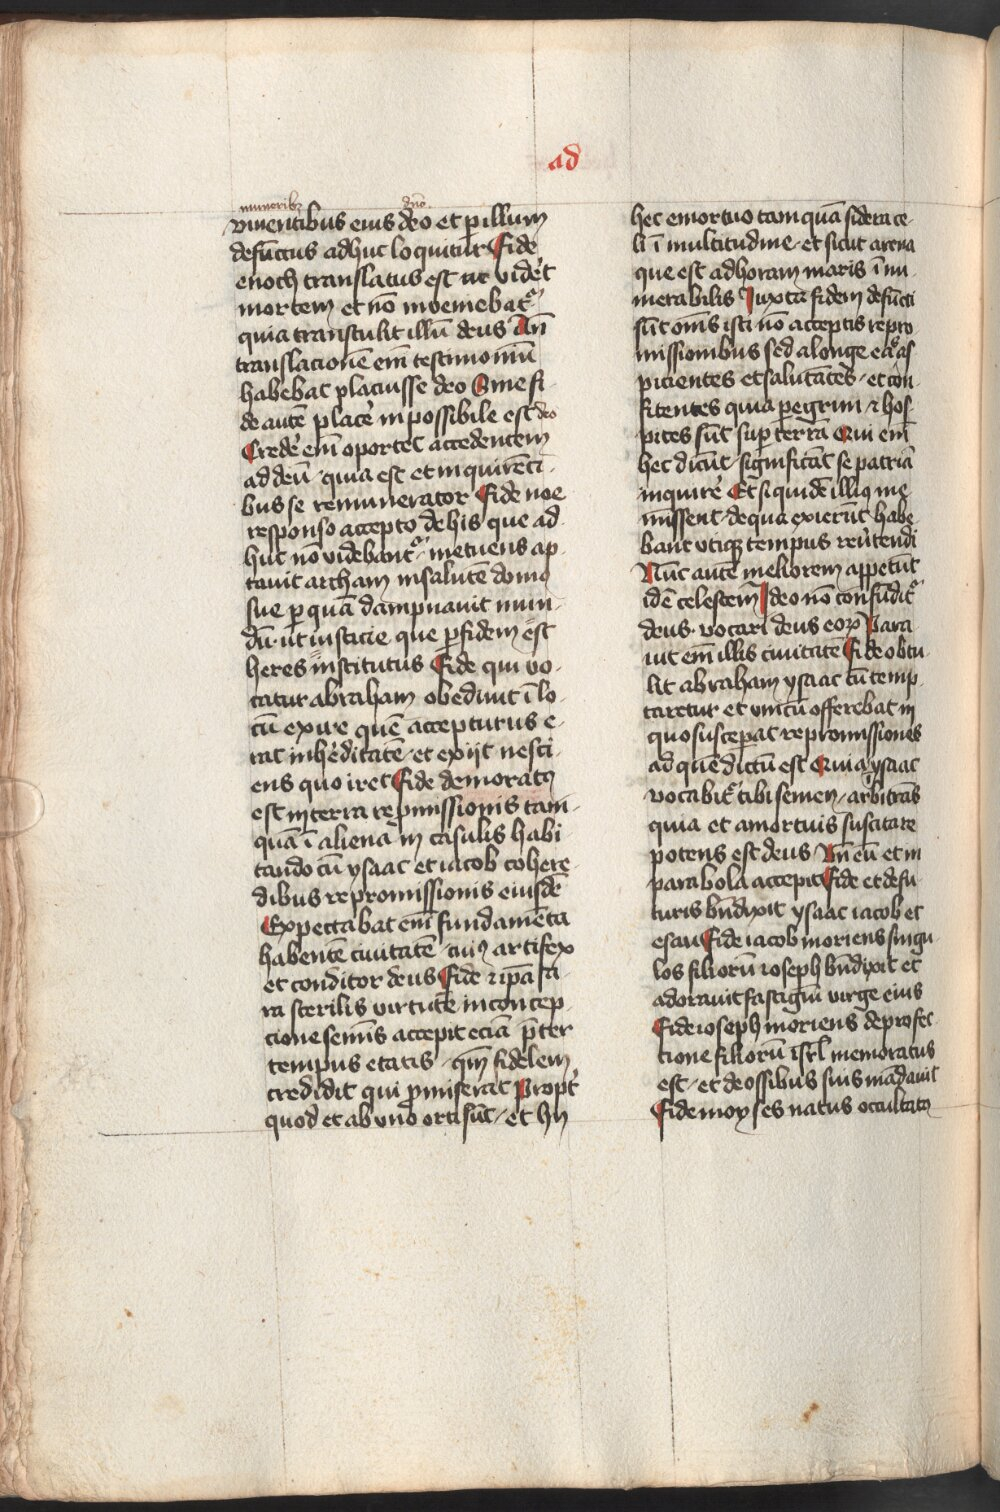 ad
munerib3 dno
viventibus eius deo et p illum
defūctus adhuc loquitur Fide
enoch translatus est ne vidēt
mortem et nō inveniebat᷑
quia transtulit illū deus An̄
translacionē em̄ testimoniū
habebat placuisse deo Sine fi-
de autē placē inpossibile est deo
Credē em̄ oportet accedentem
ad deū quia est et inquirēti-
bus se remunerator Fide noe
responso accepto de his que ad
huc nō videbant᷑ metuens ap-
tavit archam in salutē domꝰ
sue ꝑ quā dampnavit mun-
dū ut iusticie que ꝑ fidem est
heres institutus Fide qui vo-
catur abraham obedivit ī lo-
cū exire quē accepturus e-
rat in hēditatē et exijt nesci-
ens quo iret Fide demoratꝰ
est in terra repmissionis tam-
quā ī aliena in casulis habi
tando cū ysaac et iacob cohere
dibus repromissionis eiusdē
Expectabat em̄ fundamēta
habentē civitatē cuiꝰ artifex
et conditor deus Fide ⁊ ip̄a sa-
ra sterilis virtutē in concep
cione semīs accepit eciā p̄ter
tempus etatis qm̄ fidelem
credidit qui ꝓmiserat Propt̄
quod et ab uno orti sūt et hij
hec emortuo tamquā sidera ce-
li ī multitudine et sicut arena
que est ad horam maris ī nu-
merabilis Iuxta fidem defūcti
sūt om̄s isti nō acceptis repro
missionibus sed a longe eas as
picientes et salutātes et con-
fitentes quia peregrini ⁊ hos-
pites sūt suꝑ terrā Qui em̄
hec dicūt significāt se patriā
inquirē Et siquidē illiꝰ me
missent de qua exierūt habe
bant utiqꝫ tempus revertendi
Nūc autē meliorem appetūt
idē celestem Ideo nō confūdit᷑
deus vocari deus eoꝝ Para
vit em̄ illis civitatē Fide obtu-
lit abraham ysaac cū temp-
taretur et unicū offerebat in
quo susceꝑat repromissiones
ad quē dictū est Quia ī ysaac
vocabit᷑ tibi semen arbitrās
quia et a mortuis suscitare
potens est deus Un̄ eū et in
parabola accepit Fide et de fu
turis bn̄dixit ysaac iacob et
esau Fide iacob moriens singu-
los filiorū ioseph bn̄dixit et
adoravit fastigiū virge eius
Fide ioseph moriens de profec-
tione filiorū isrl̄ memoratus
est et de ossibus suis mādavit
Fide moyses natus occultatꝰ